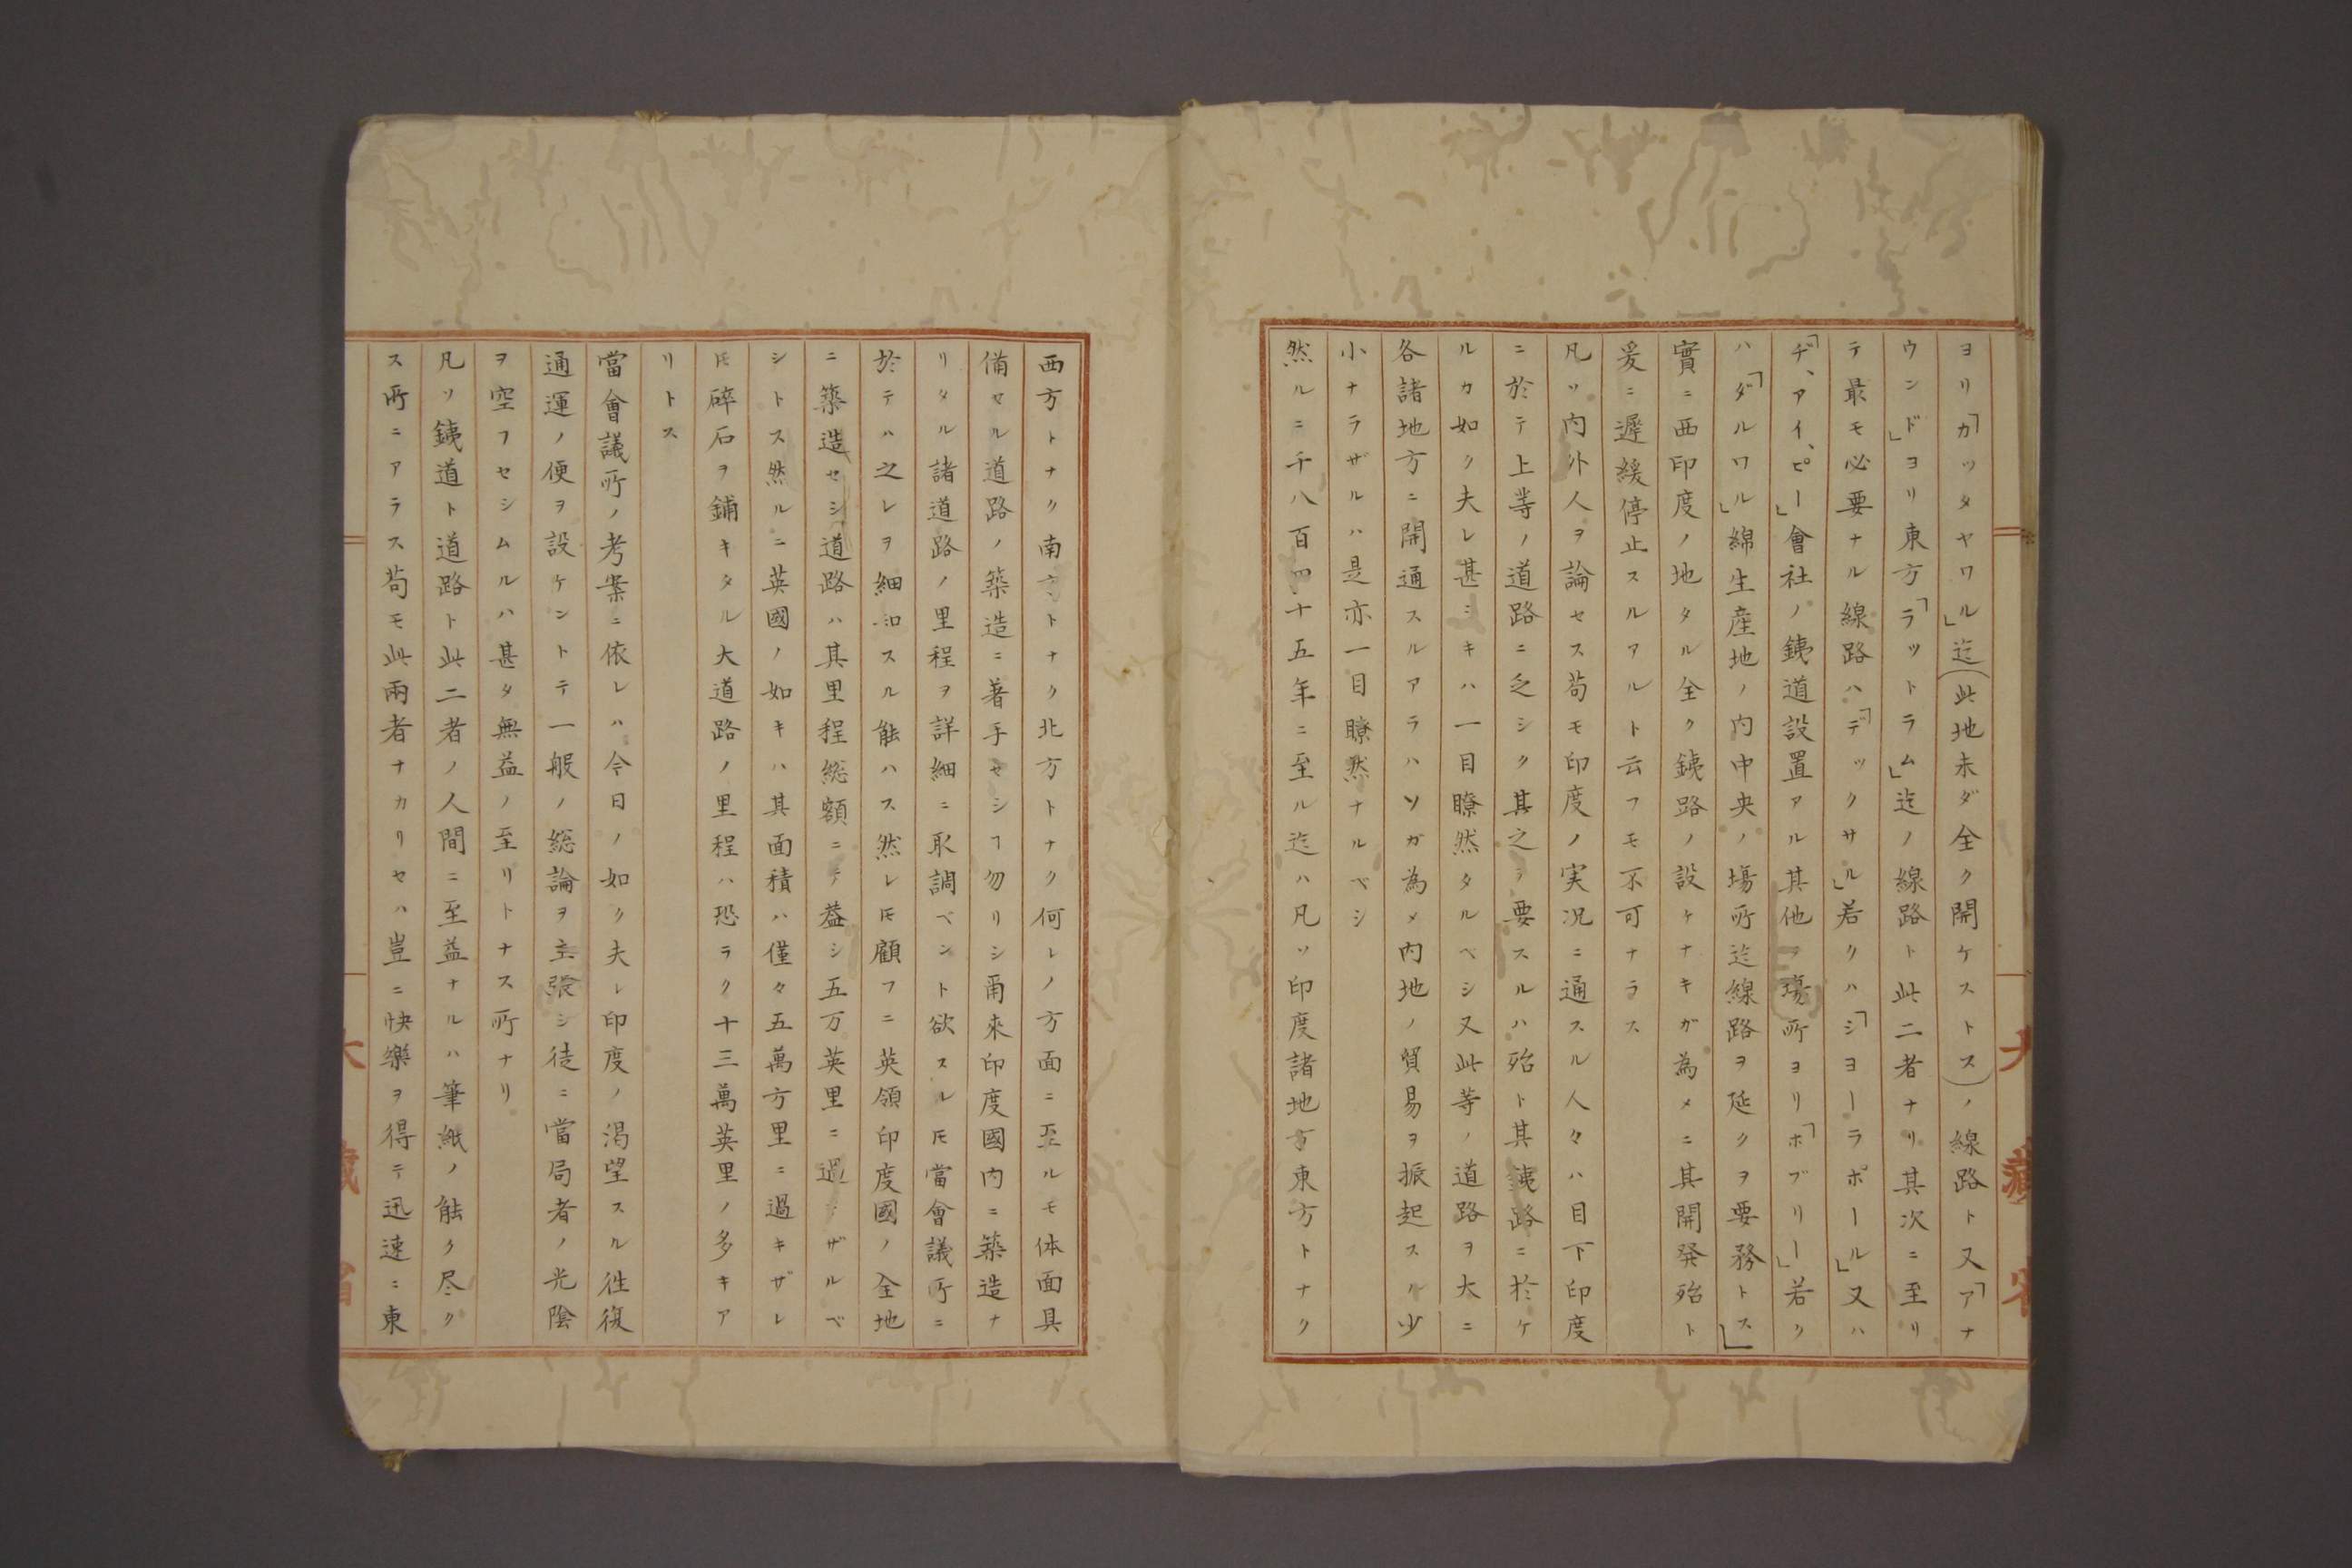 ヨリ「カッタヤワル」迄(此地未ダ全ク開ケストス)ノ線路ト又「アナ
ウンド」ヨリ東方「ラットラム」迄ノ線路ト此二者ナリ其次ニ至リ
テ最モ必要ナル線路ハ「デックサル」若クハ「ショーラポール」又ハ
「ヂ、アイ、ピー」會社ノ銕道設置アル其他ノ場所ヨリ「ホブリー」若ク
ハ「ダルワル」綿生産地ノ内中央ノ場所迄線路ヲ延クヲ要務トス」
實ニ西印度ノ地タル全ク銕路ノ設ケナキガ為メニ其開発殆ト
爰ニ遲緩停止スルアルト云フモ不可ナラス
凡ソ内外人ヲ論セス苟モ印度ノ実况ニ通スル人々ハ目下印度
ニ於テ上等ノ道路ニ乏シク其之ヲ要スルハ殆ト其銕路ニ於ケ
ルカ如ク夫レ甚シキハ一目瞭然タルベシ又此等ノ道路ヲ大ニ
各諸地方ニ開通スルアラハソガ為メ内地ノ貿易ヲ振起スル少
小ナラザルハ是亦一目瞭然ナルベシ
然ルニ千八百四十五年ニ至ル迄ハ凡ソ印度諸地方東方トナク
西方トナク南方トナク北方トナク何レノ方面ニ至ルモ体面具
備セル道路ノ築造ニ著手セシヿ勿リシ爾來印度國内ニ築造ナ
リタル諸道路ノ里程ヲ詳細ニ取調ベント欲スレ𪜈當會議所ニ
於テハ之レヲ細知スル能ハス然レ𪜈顧フニ英領印度國ノ全地
ニ築造セシ道路ハ其里程総額ニテ蓋シ五万英里ニ過キザルベ
シトス然ルニ英國ノ如キハ其面積ハ僅々五萬方里ニ過キザレ
𪜈碎石ヲ鋪キタル大道路ノ里程ハ恐ラク十三萬英里ノ多キア
リトス
當會議所ノ考案ニ依レハ今日ノ如ク夫レ印度ノ渇望スル徃復
通運ノ便ヲ設ケントテ一般ノ総論ヲ主張シ徒ニ當局者ノ光陰
ヲ空フセシムルハ甚タ無益ノ至リトナス所ナリ
凡ソ銕道ト道路ト此二者ノ人間ニ至益ナルハ筆紙ノ能ク尽ク
ス所ニアラス苟モ此兩者ナカリセハ豈ニ快樂ヲ得テ迅速ニ東
大藏省